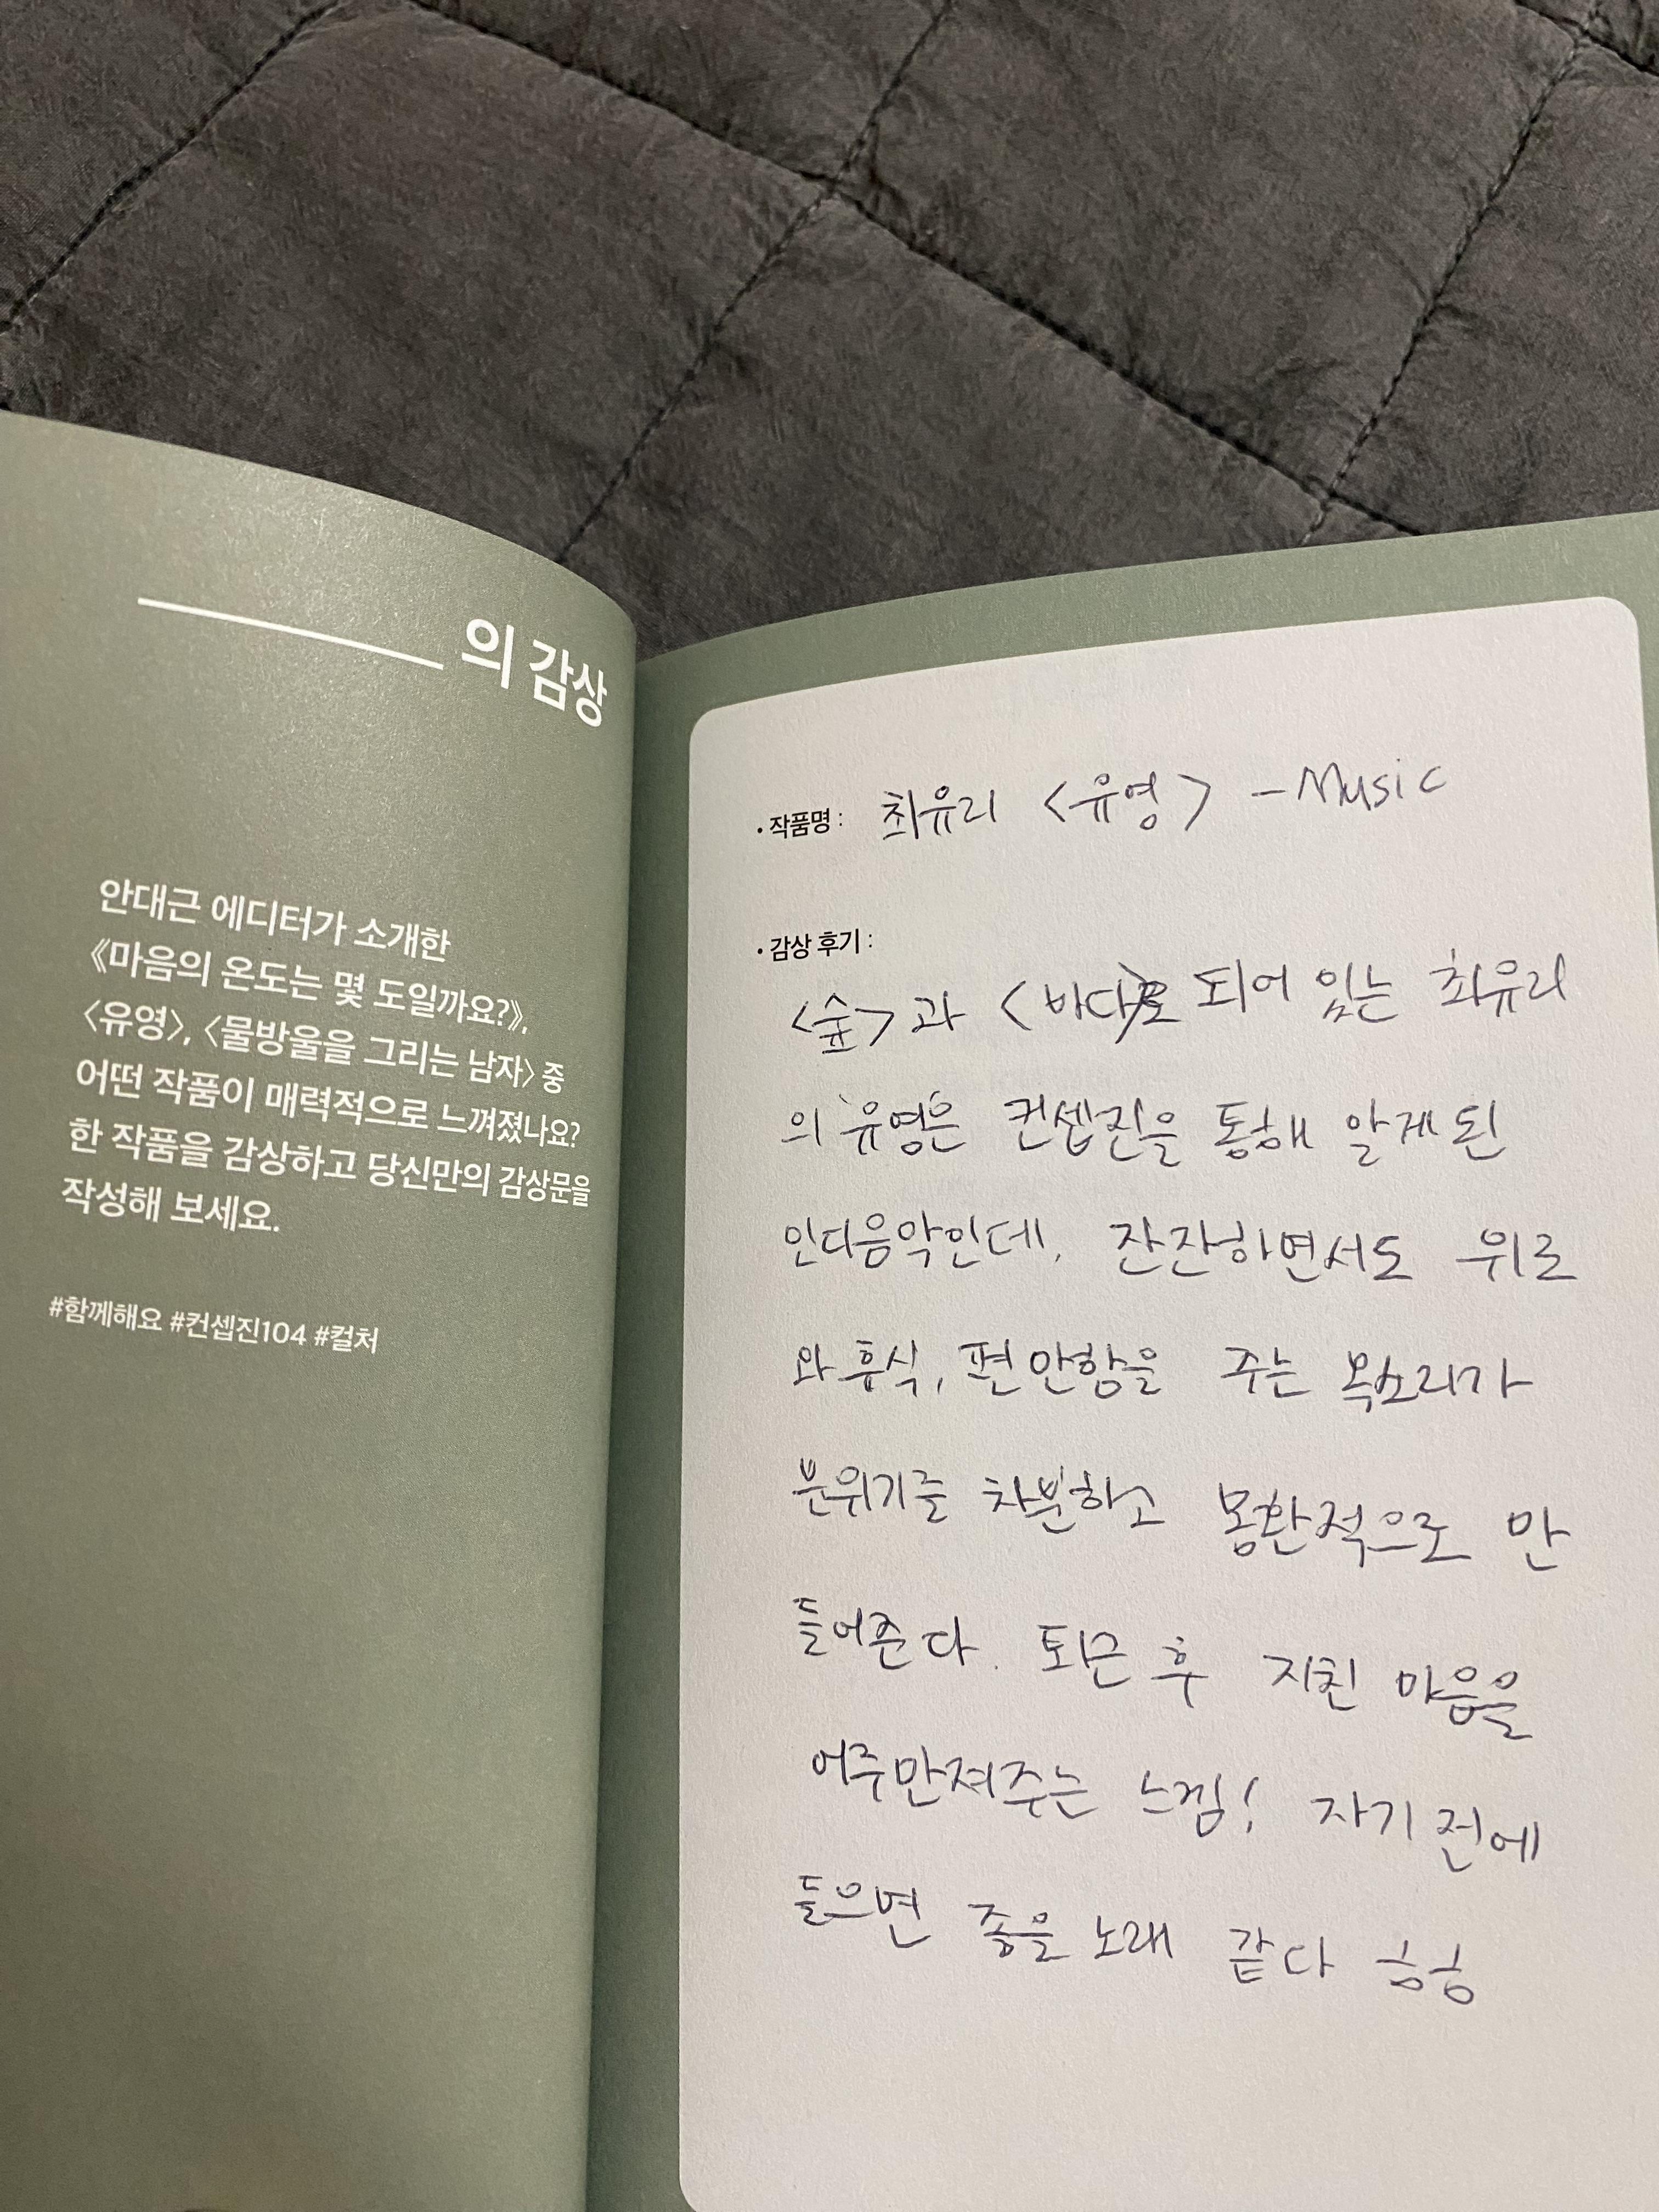 의 감상
안대근 에디터가 소개한
《마음의 온도는 몇 도일까요?》,
〈유영〉, 〈물방울을 그리는 남자〉 중
어떤 작품이 매력적으로 느껴졌나요?
한 작품을 감상하고 당신만의 감상문을
작성해 보세요.
#함께해요 #컨셉진104 #컬처
• 작품명 : 최유리 <유영> - Music
• 감상 후기 :
<숲>과 <바다>로 되어 있는 최유리
의 '유영'은 컨셉진을 통해 알게 된
인디음악인데, 잔잔하면서도 위로
와 휴식, 편안함을 주는 목소리가
분위기를 차분하고 몽환적으로 만
들어준다. 퇴근 후 지친 마음을
어루만져주는 느낌! 자기 전에
들으면 좋을 노래 같다 ㅎㅎ